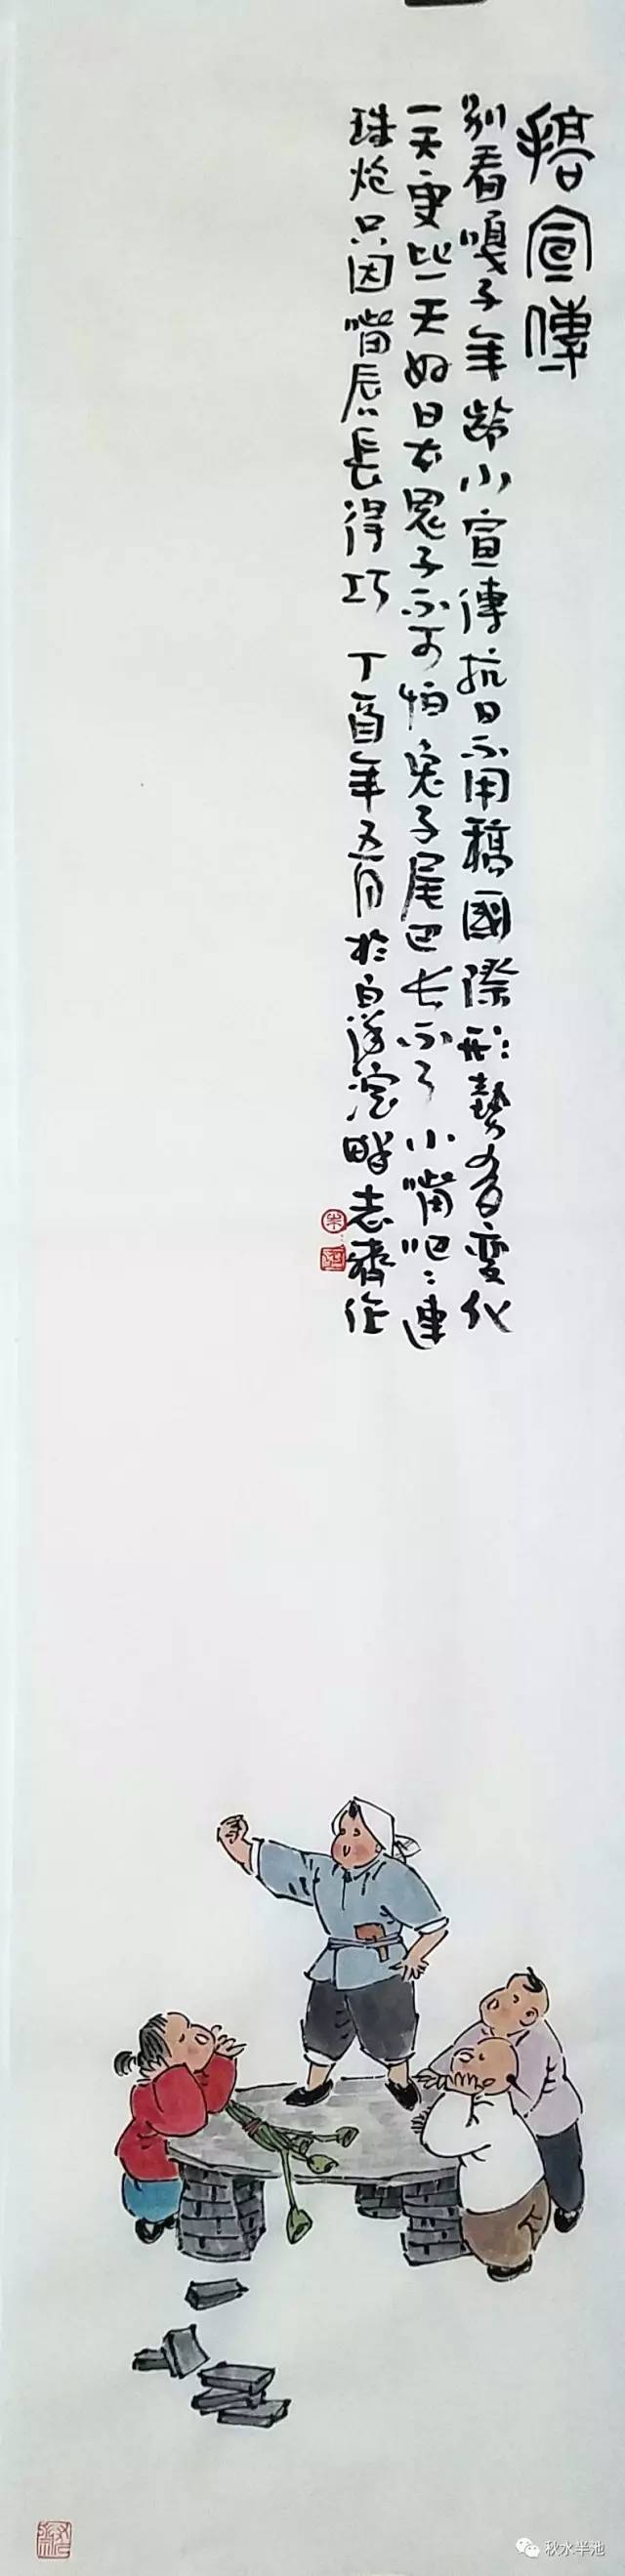 搞宣傳
别看嘎子年龄小宣傳抗日不用稿國際形势有变化
一天更比一天好日本鬼子不可怕兔子尾巴长不了小嘴吧:連
珠炮只因嘴唇長得巧 丁酉年五月於白洋淀畔志齋作
秋水半池